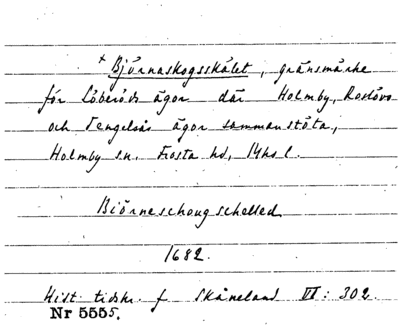 + Björnaskogsskälet, gränsmärke
för Löberöds ägor där Holmby, Rostövs
och Tengelsås ägor sammanstöta,
Holmby sn. Frosta hd, Mhs l.
Biörneschougschelled
1682.
Hist. tidskr. f Skåneland VI: 302.
Nr 5555.